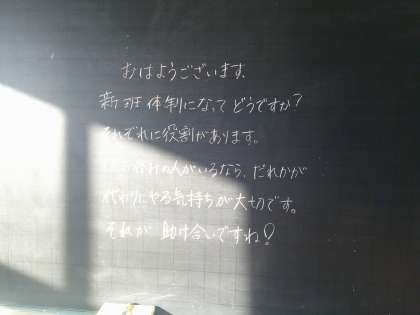 おはようございます。
新班体制になってどうですか?
それぞれに役割があります。
お休みの人がいるなら、だれかが
代わりにやる気持ちが大切です。
それが助け合いですね!